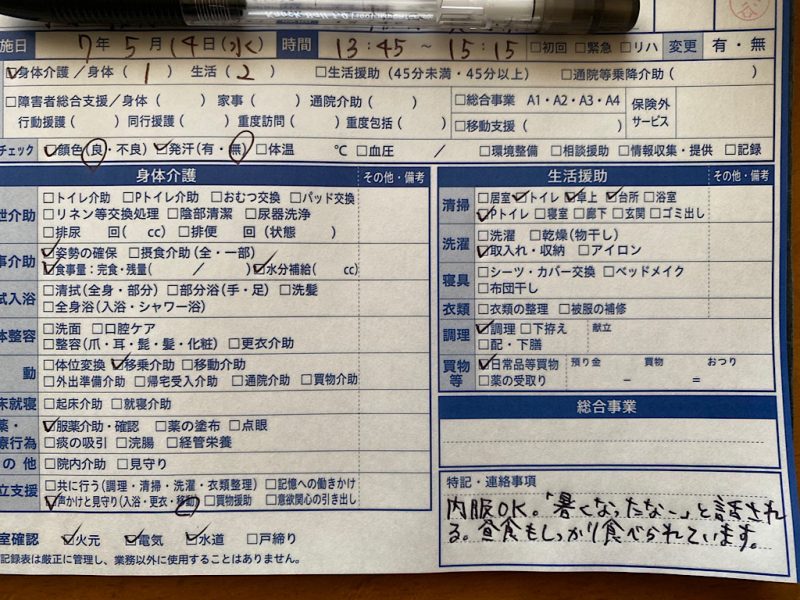 施日 7年5月14日(水) 時間 13:45 ~ 15:15 □初回 □緊急 □リハ 変更 有・無
☑身体介護/身体( 1 ) 生活( 2 ) □生活援助(45分未満・45分以上) □通院等乗降介助( )
□障害者総合支援/身体( ) 家事( ) 通院介助( ) □総合事業 A1・A2・A3・A4 保険外
行動援護( ) 同行援護( ) 重度訪問( ) 重度包括( ) □移動支援( ) サービス
チェック ☑顔色(良・不良) ☑発汗(有・無) □体温 ℃ □血圧 / □環境整備 □相談援助 □情報収集・提供 □記録
身体介護 その他・備考
泄介助 □トイレ介助 □Pトイレ介助 □おむつ交換 □パッド交換
□リネン等交換処理 □陰部清潔 □尿器洗浄
□排尿 回( cc) □排便 回(状態 )
事介助 ☑姿勢の確保 □摂食介助(全・一部)
☑食事量:完食・残量( / ) ☑水分補給( cc)
拭入浴 □清拭(全身・部分) □部分浴(手・足) □洗髪
□全身浴(入浴・シャワー浴)
体整容 □洗面 □口腔ケア
□整容(爪・耳・髭・髪・化粧) □更衣介助
動 □体位変換 ☑移乗介助 □移動介助
□外出準備介助 □帰宅受入介助 □通院介助 □買物介助
床就寝 □起床介助 □就寝介助
薬・ ☑服薬介助・確認 □薬の塗布 □点眼
療行為 □痰の吸引 □浣腸 □経管栄養
の他 □院内介助 □見守り
立支援 □共に行う(調理・清掃・洗濯・衣類整理) □記憶への働きかけ
☑声かけと見守り(入浴・更衣・移動) □買物援助 □意欲関心の引き出し
室確認 ☑火元 ☑電気 ☑水道 □戸締り
記録表は厳正に管理し、業務以外に使用することはありません。
生活援助 その他・備考
清掃 □居室 ☑トイレ ☑卓上 ☑台所 □浴室
☑Pトイレ □寝室 □廊下 □玄関 □ゴミ出し
洗濯 □洗濯 □乾燥(物干し)
☑取入れ・収納 □アイロン
寝具 □シーツ・カバー交換 □ベッドメイク
□布団干し
衣類 □衣類の整理 □被服の補修
調理 ☑調理 □下拵え 献立
□配・下膳
買物 ☑日常品等買物 預り金 買物 おつり
等 □薬の受取り − =
総合事業
特記・連絡事項
内服OK。「暑くなったなー」と話され
る。昼食もしっかり食べられています。